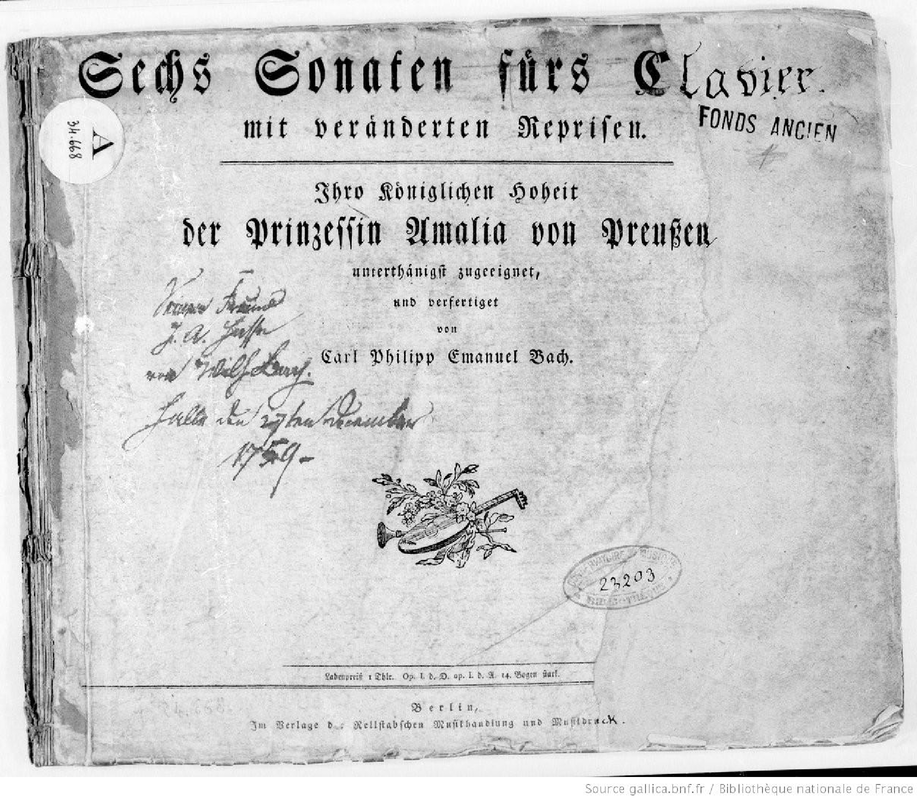 Sechs Sonaten fürs Clavier.
FONDS ANCIEN
mit veränderten Reprisen.
A
34.668
Ihro Königlichen Hoheit
der Prinzessin Amalia von Preußen
unterthänigst zugeeignet,
und verfertiget
von
Carl Philipp Emanuel Bach.
Freund
J. A.
von Wilh
Halle den 27ten December
1759-
23203
Ladenpreiß 1 Thlr. Op. I. d. D. op. I. d. A. 14. Bogen stark.
Berlin,
Im Verlage der Rellstabschen Musikhandlung und Musikdruck.
Source gallica.bnf.fr / Bibliothèque nationale de France